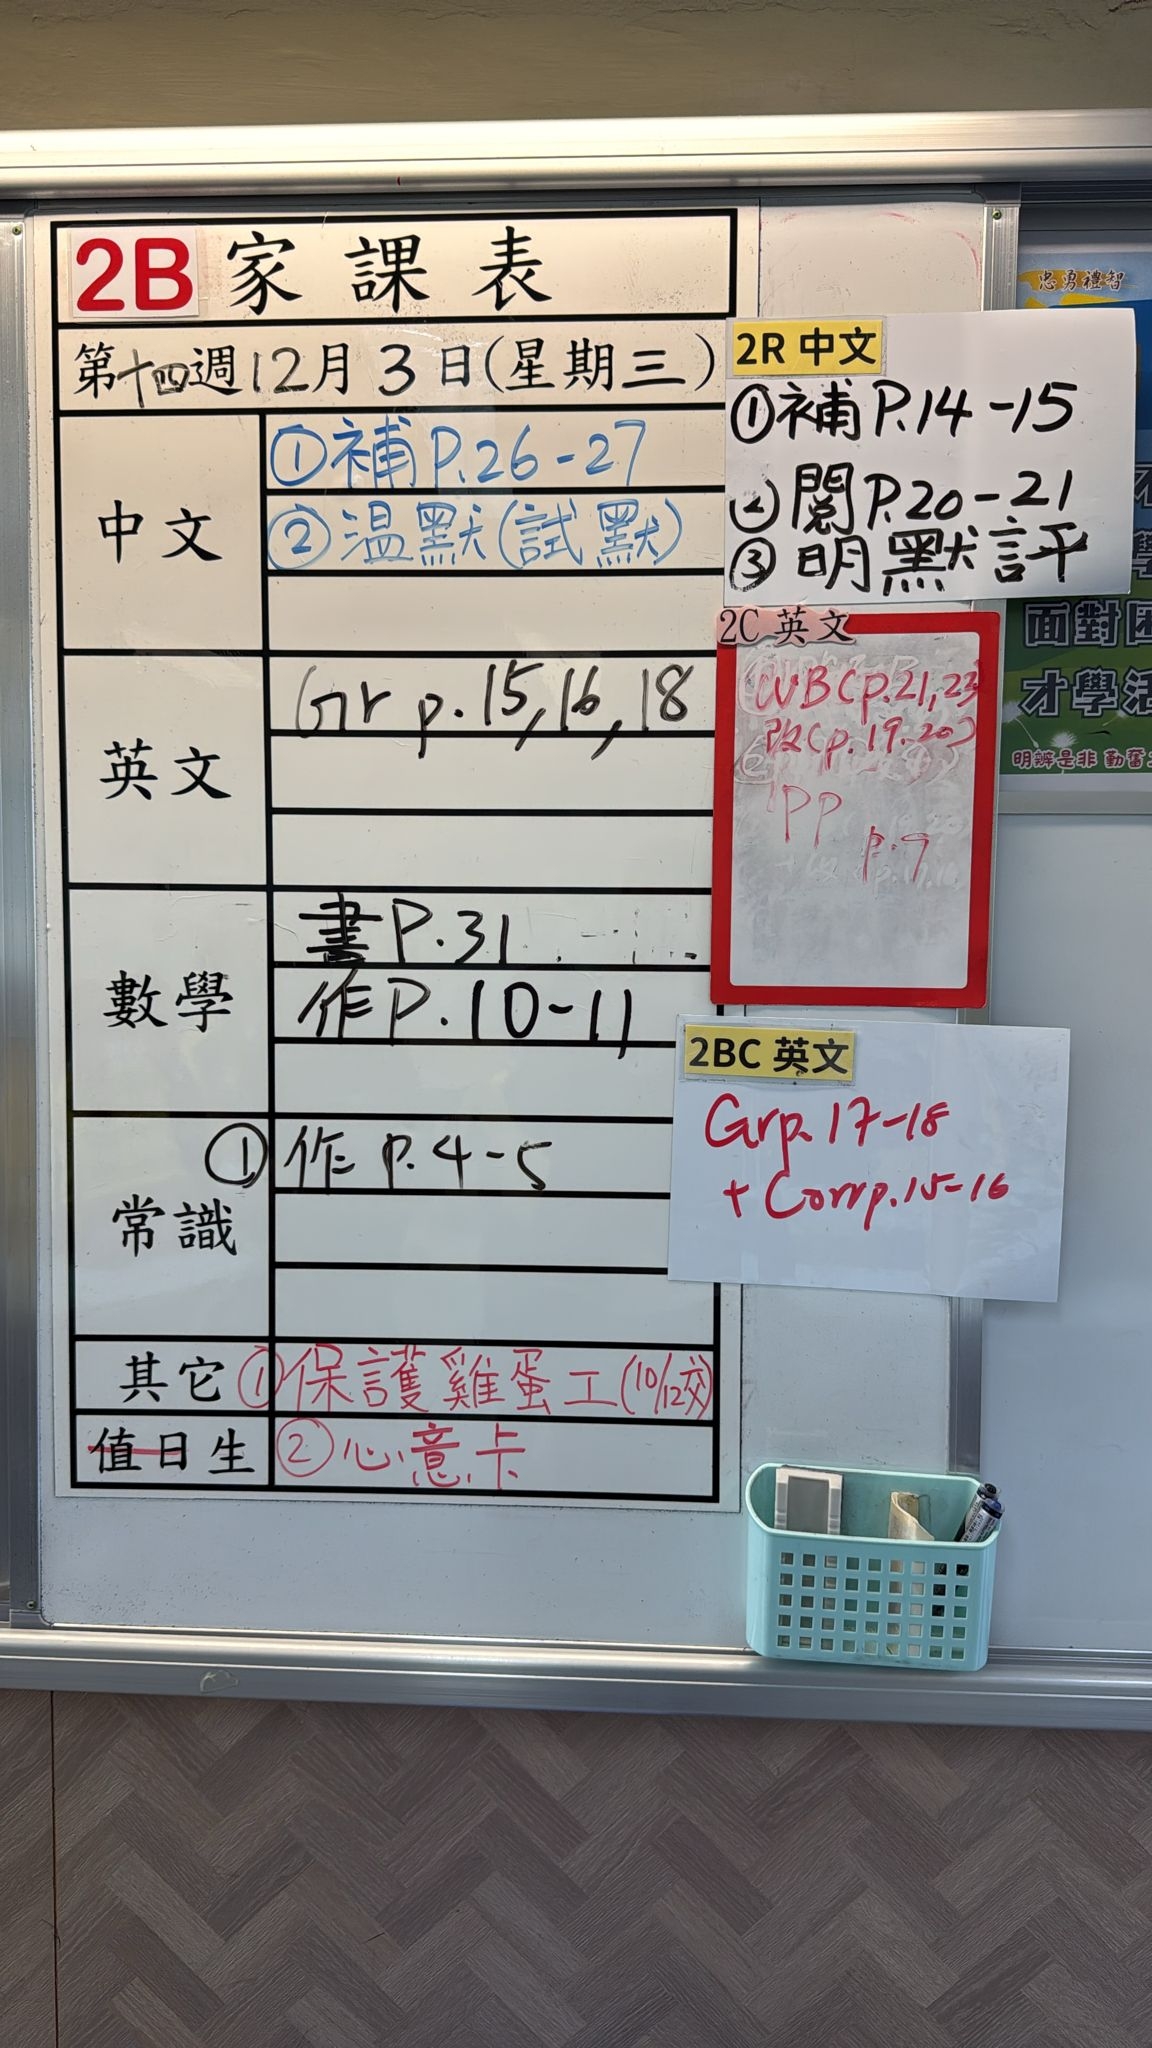 2B 家課表
第十四週12月3日(星期三)
中文
①補P.26-27
②溫默(試默)
英文
Gr p.15,16,18
數學
書P.31
作P.10-11
常識
①作P.4-5
其它
①保護雞蛋工(10/12交)
值日生
②心意卡
2R 中文
①補P.14-15
②閱P.20-21
③明默評
2C 英文
WB(p.21,23
改(p.19.20)
PP
p.9
2BC 英文
Grp.17-18
+ Corrp.15-16
忠勇禮智
面對困
才學活
明辨是非 勤奮